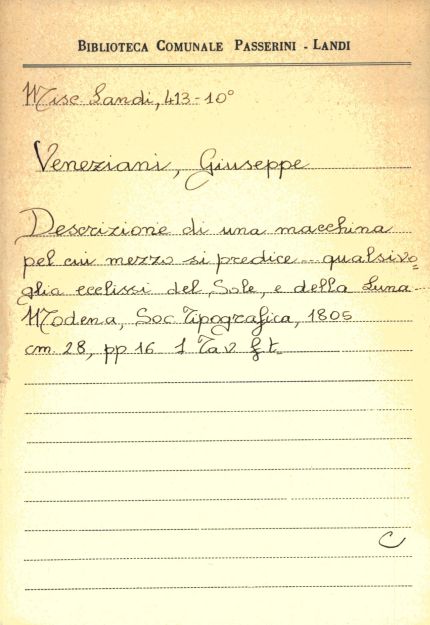 BIBLIOTECA COMUNALE PASSERINI - LANDI
Misc Landi, 413-10°
Veneziani, Giuseppe
Descrizione di una macchina
pel cui mezzo si predice qualsivo=
glia ecclissi del Sole, e della Luna
Modena, Soc Tipografica, 1805
cm. 28, pp 16 1 Tav f t.
C